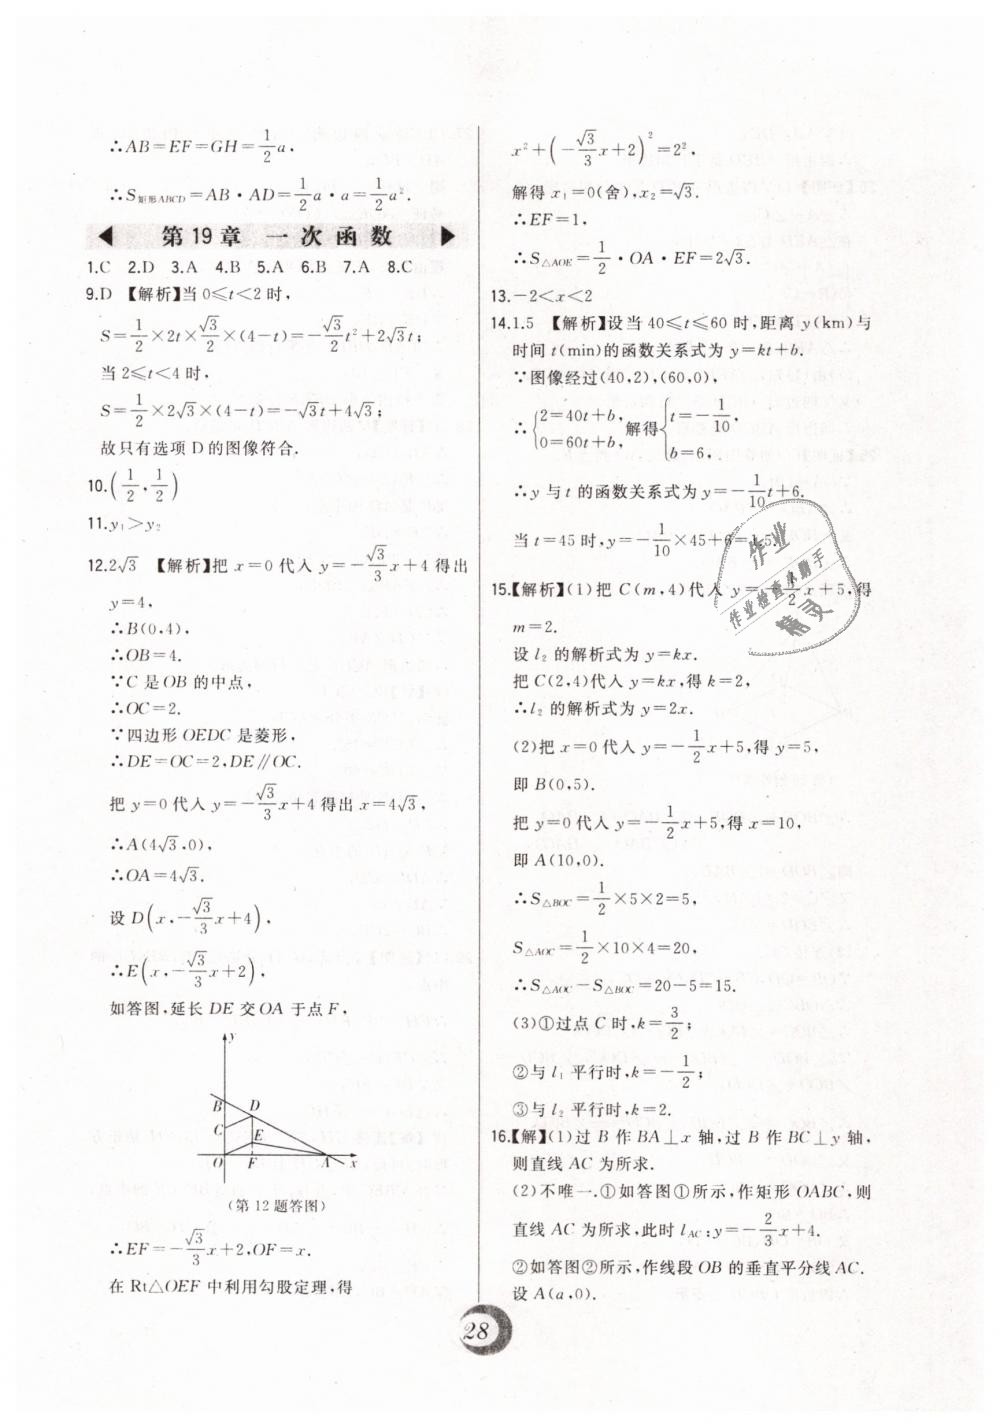 ∴AB=EF=GH=1/2a,
∴S矩形ABCD=AB·AD=1/2a·a=1/2a².
第19章 一次函数
1.C 2.D 3.A 4.B 5.A 6.B 7.A 8.C
9.D 【解析】当0≤t<2时,
S=1/2×2t×√3/2×(4-t)=-√3/2t²+2√3t;
当2≤t<4时,
S=1/2×2√3×(4-t)=-√3t+4√3;
故只有选项D的图像符合.
10.(1/2,1/2)
11.y₁>y₂
12.2√3 【解析】把x=0代入y=-√3/3x+4得出
y=4,
∴B(0,4),
∴OB=4.
∵C是OB的中点,
∴OC=2.
∵四边形OEDC是菱形,
∴DE=OC=2,DE∥OC.
把y=0代入y=-√3/3x+4得出x=4√3,
∴A(4√3,0),
∴OA=4√3.
设D(x,-√3/3x+4),
∴E(x,-√3/3x+2),
如答图,延长DE交OA于点F,
y
B D
C
E
O F A x
(第12题答图)
∴EF=-√3/3x+2,OF=x.
在Rt△OEF中利用勾股定理,得
x²+(-√3/3x+2)²=2²,
解得x₁=0(舍),x₂=√3.
∴EF=1,
∴S△AOE=1/2·OA·EF=2√3.
13.-2<x<2
14.1.5 【解析】设当40≤t≤60时,距离y(km)与
时间t(min)的函数关系式为y=kt+b.
∵图像经过(40,2),(60,0),
∴{2=40t+b, 0=60t+b, 解得{t=-1/10, b=6,
∴y与t的函数关系式为y=-1/10t+6,
当t=45时,y=-1/10×45+6=1.5.
15.【解析】(1)把C(m,4)代入y=-1/2x+5,得
m=2.
设l₂的解析式为y=kx.
把C(2,4)代入y=kx,得k=2,
∴l₂的解析式为y=2x.
(2)把x=0代入y=-1/2x+5,得y=5,
即B(0,5).
把y=0代入y=-1/2x+5,得x=10,
即A(10,0).
∴S△BOC=1/2×5×2=5,
S△AOC=1/2×10×4=20,
∴S△AOC-S△BOC=20-5=15.
(3)①过点C时,k=3/2;
②与l₁平行时,k=-1/2;
③与l₂平行时,k=2.
16.【解】(1)过B作BA⊥x轴,过B作BC⊥y轴,
则直线AC为所求.
(2)不唯一.①如答图①所示,作矩形OABC,则
直线AC为所求,此时lAC:y=-2/3x+4.
②如答图②所示,作线段OB的垂直平分线AC.
设A(a,0).
作业
作业检查小助手
精灵
28